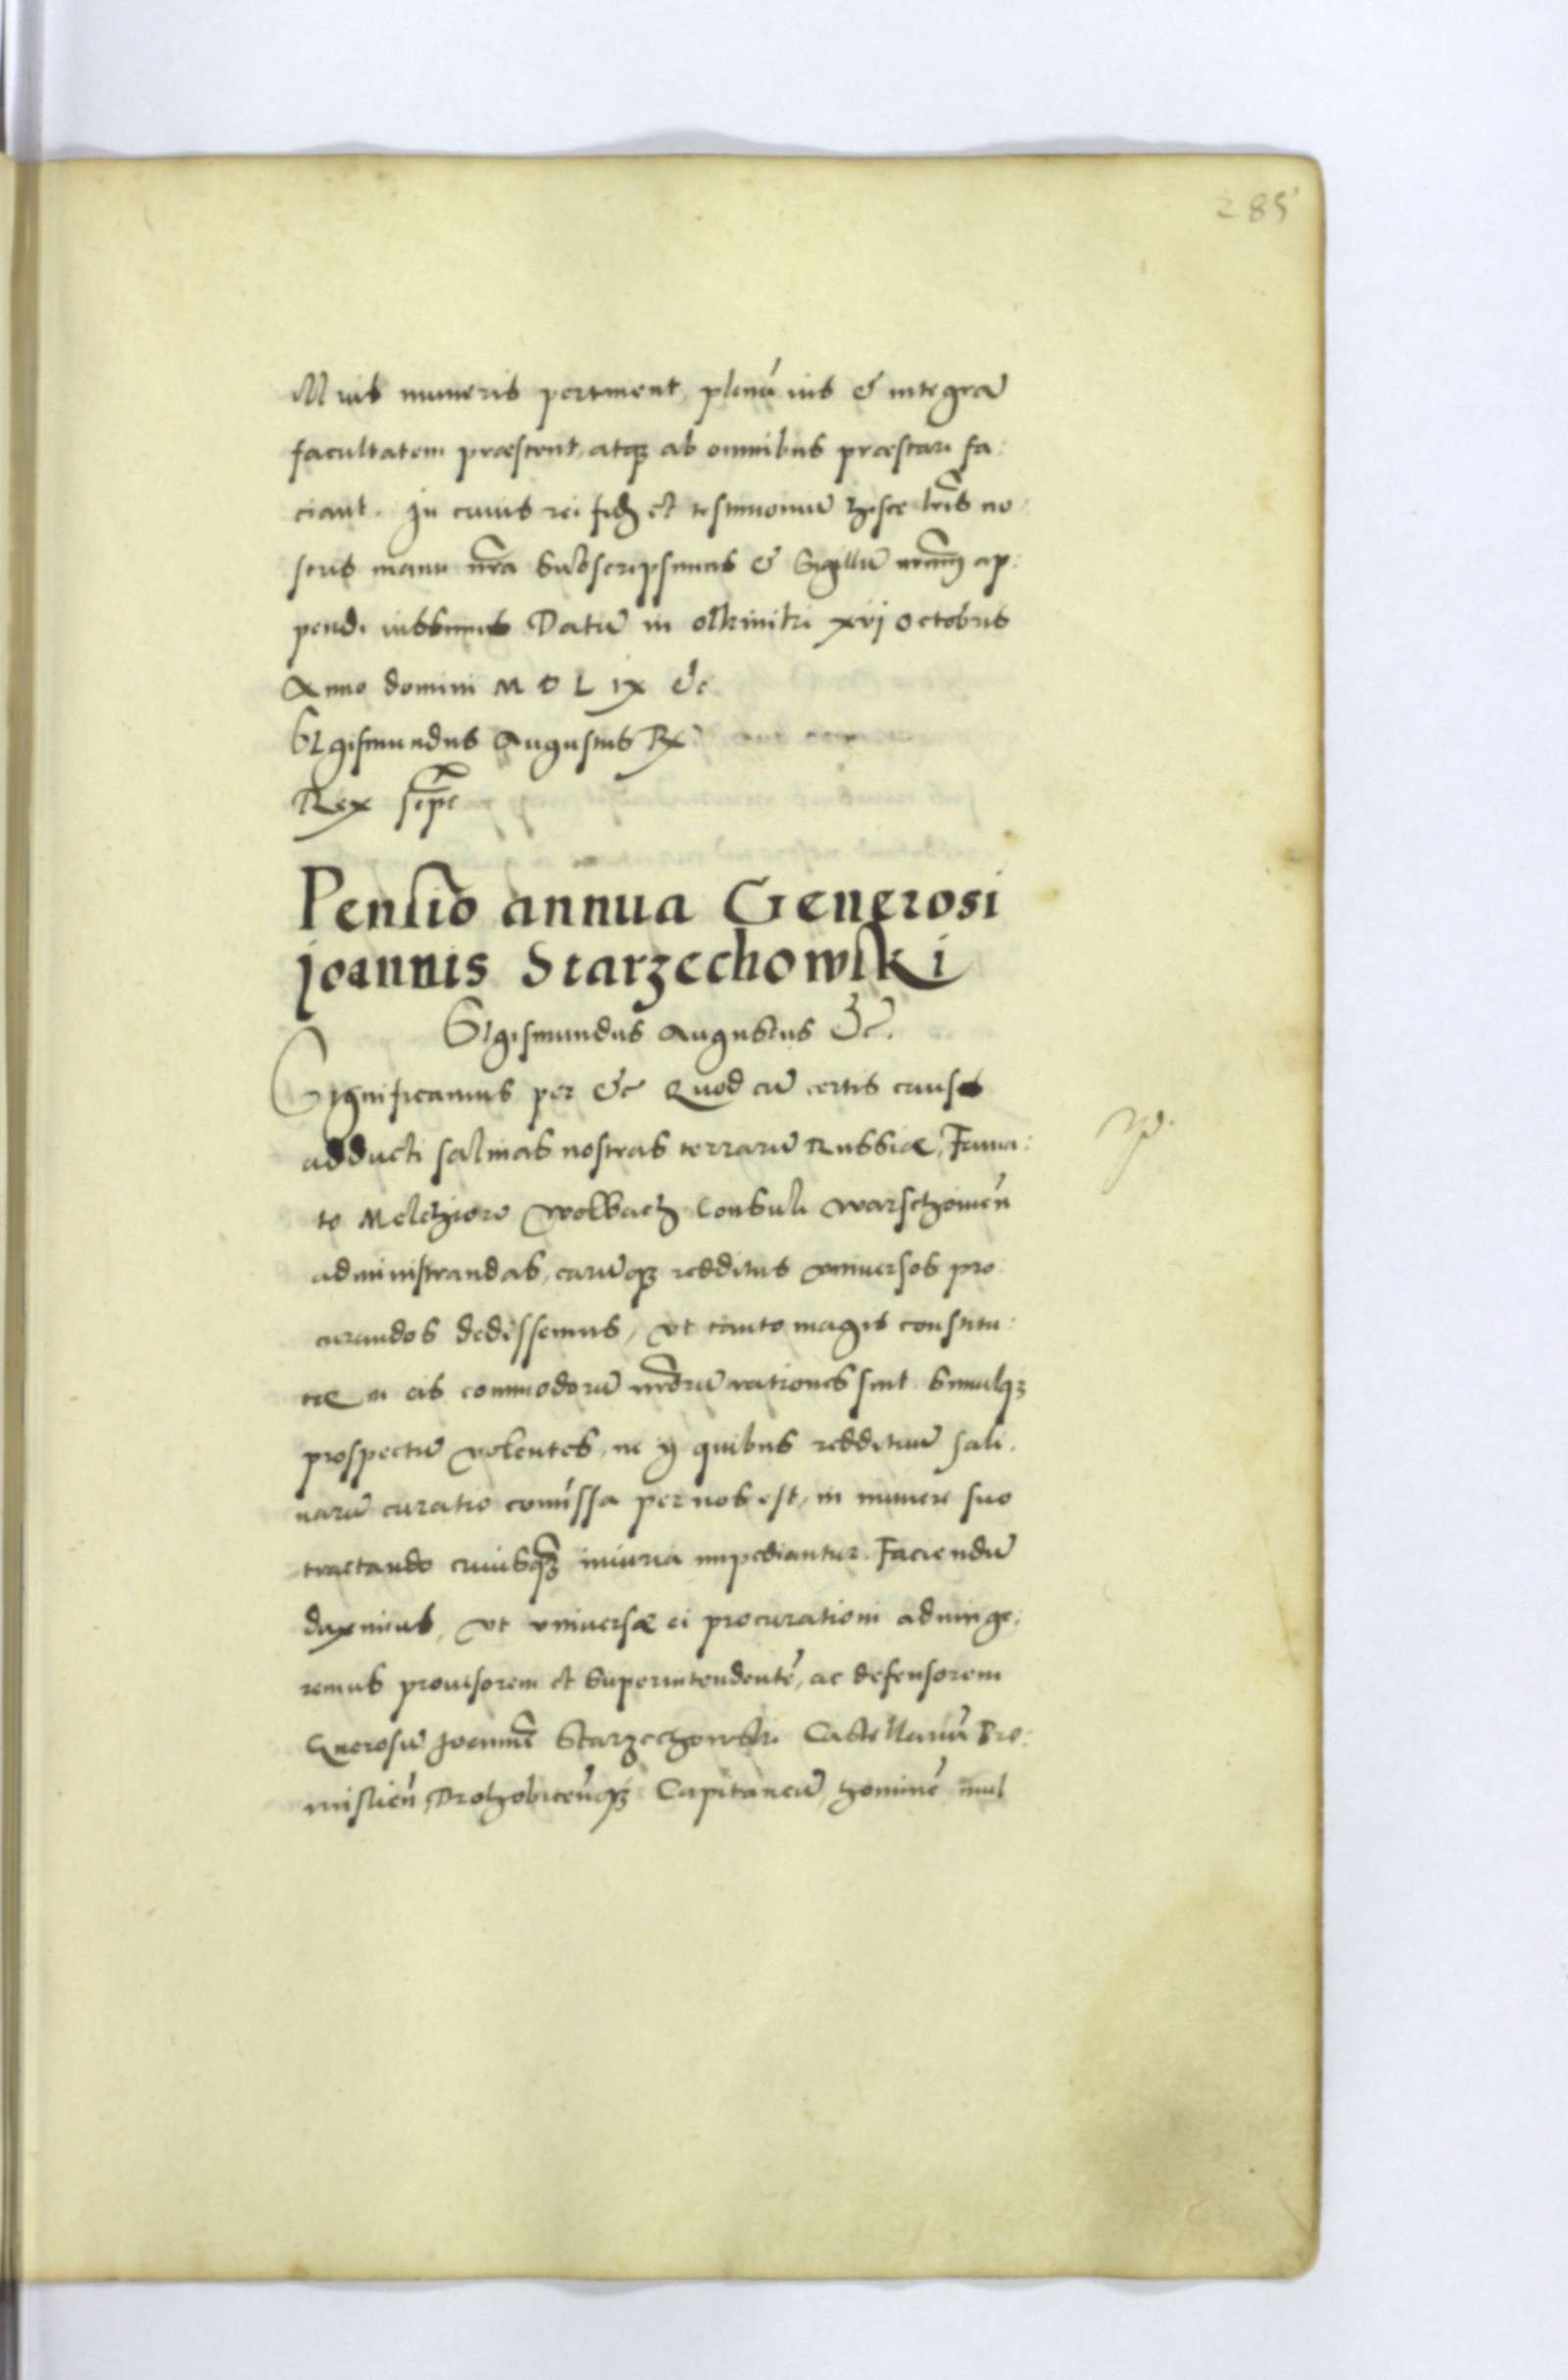 285
M uis muneris pertinent, plenũ ius & integrã
facultatem præstent, atq̃ ab omnibus præstari fa:
ciant. In cuius rei fidẽ et testimoniũ hisce lr̃is no
stris manu nr̃a subscripsimus & Sigillũ nr̃m ap:
pendi iussimus Datũ in olkiniki xvj octobris
Anno domini M D L ix &c
SIgismundus Augustus Rx
Rex sc̃pt
Pensio annua Generosi
joannis Starzechowski
SIgismundus Augustus &c.
SIgnificamus per &c Quod cũ certis causis
adducti salinas nostras terrarũ Russiæ, Fama:
to Melchiore Wolbach Consuli Warschouieñ
administrandas, earũq3 redditus vniuersos pro
curandos dedissemus, vt tanto magis constitu:
tæ in eis commodorũ nr̃orũ rationes sint. Simulq3
prospectũ volentes, ne ÿ quibus reddituũ sali.
narũ curatio com̃issa per nos est, in munere suo
tractando cuiusq̃3 iniuria impediantur. Faciendũ
duximus, vt vniuersæ ei procurationi adiunge.
remus prouisorem et Superintendentẽ, ac defensorem
Gnerosũ Joannẽ Starzechowski Castellanũ Pre:
mislieñ, Drohobiceñq3 Capitaneũ, hominẽ mul